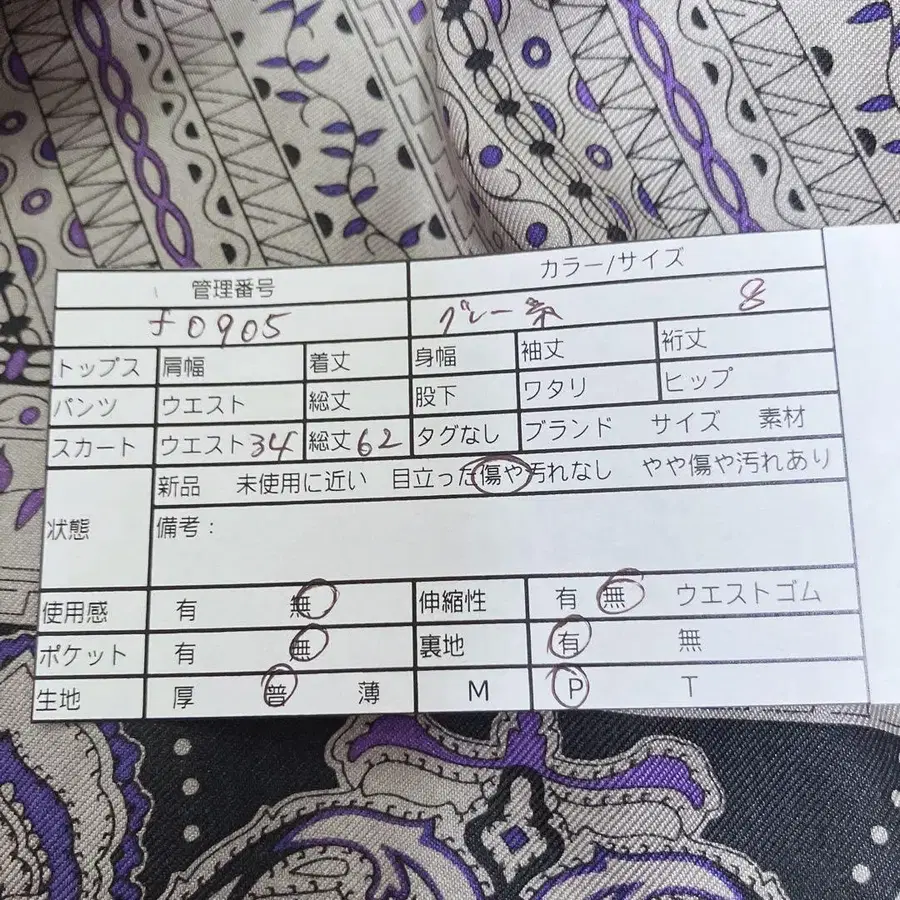 管理番号 カラー/サイズ
f0905 グレー系 8
トップス 肩幅 着丈 身幅 袖丈 裄丈
パンツ ウエスト 総丈 股下 ワタリ ヒップ
スカート ウエスト34 総丈62 タグなし ブランド サイズ 素材
状態 新品 未使用に近い 目立った傷や汚れなし やや傷や汚れあり
備考：
使用感 有 無 伸縮性 有 無 ウエストゴム
ポケット 有 無 裏地 有 無
生地 厚 普 薄 M P T